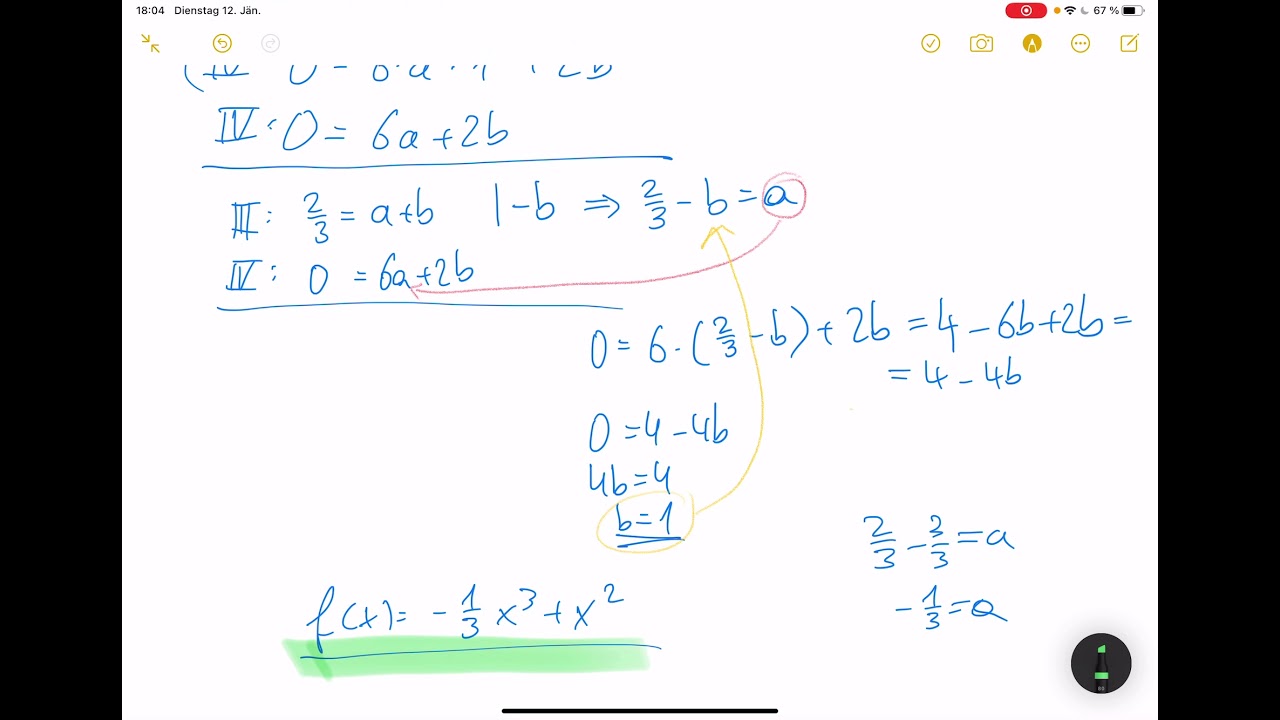 18:04 Dienstag 12. Jän. 67 %
IV: 0 = 6a+2b
III: 2/3 = a+b |-b ⇒ 2/3 - b = a
IV: 0 = 6a+2b
0 = 6·(2/3 - b) + 2b = 4 - 6b + 2b =
= 4 - 4b
0 = 4 - 4b
4b = 4
b = 1
2/3 - 3/3 = a
- 1/3 = a
f(x) = - 1/3 x³ + x²